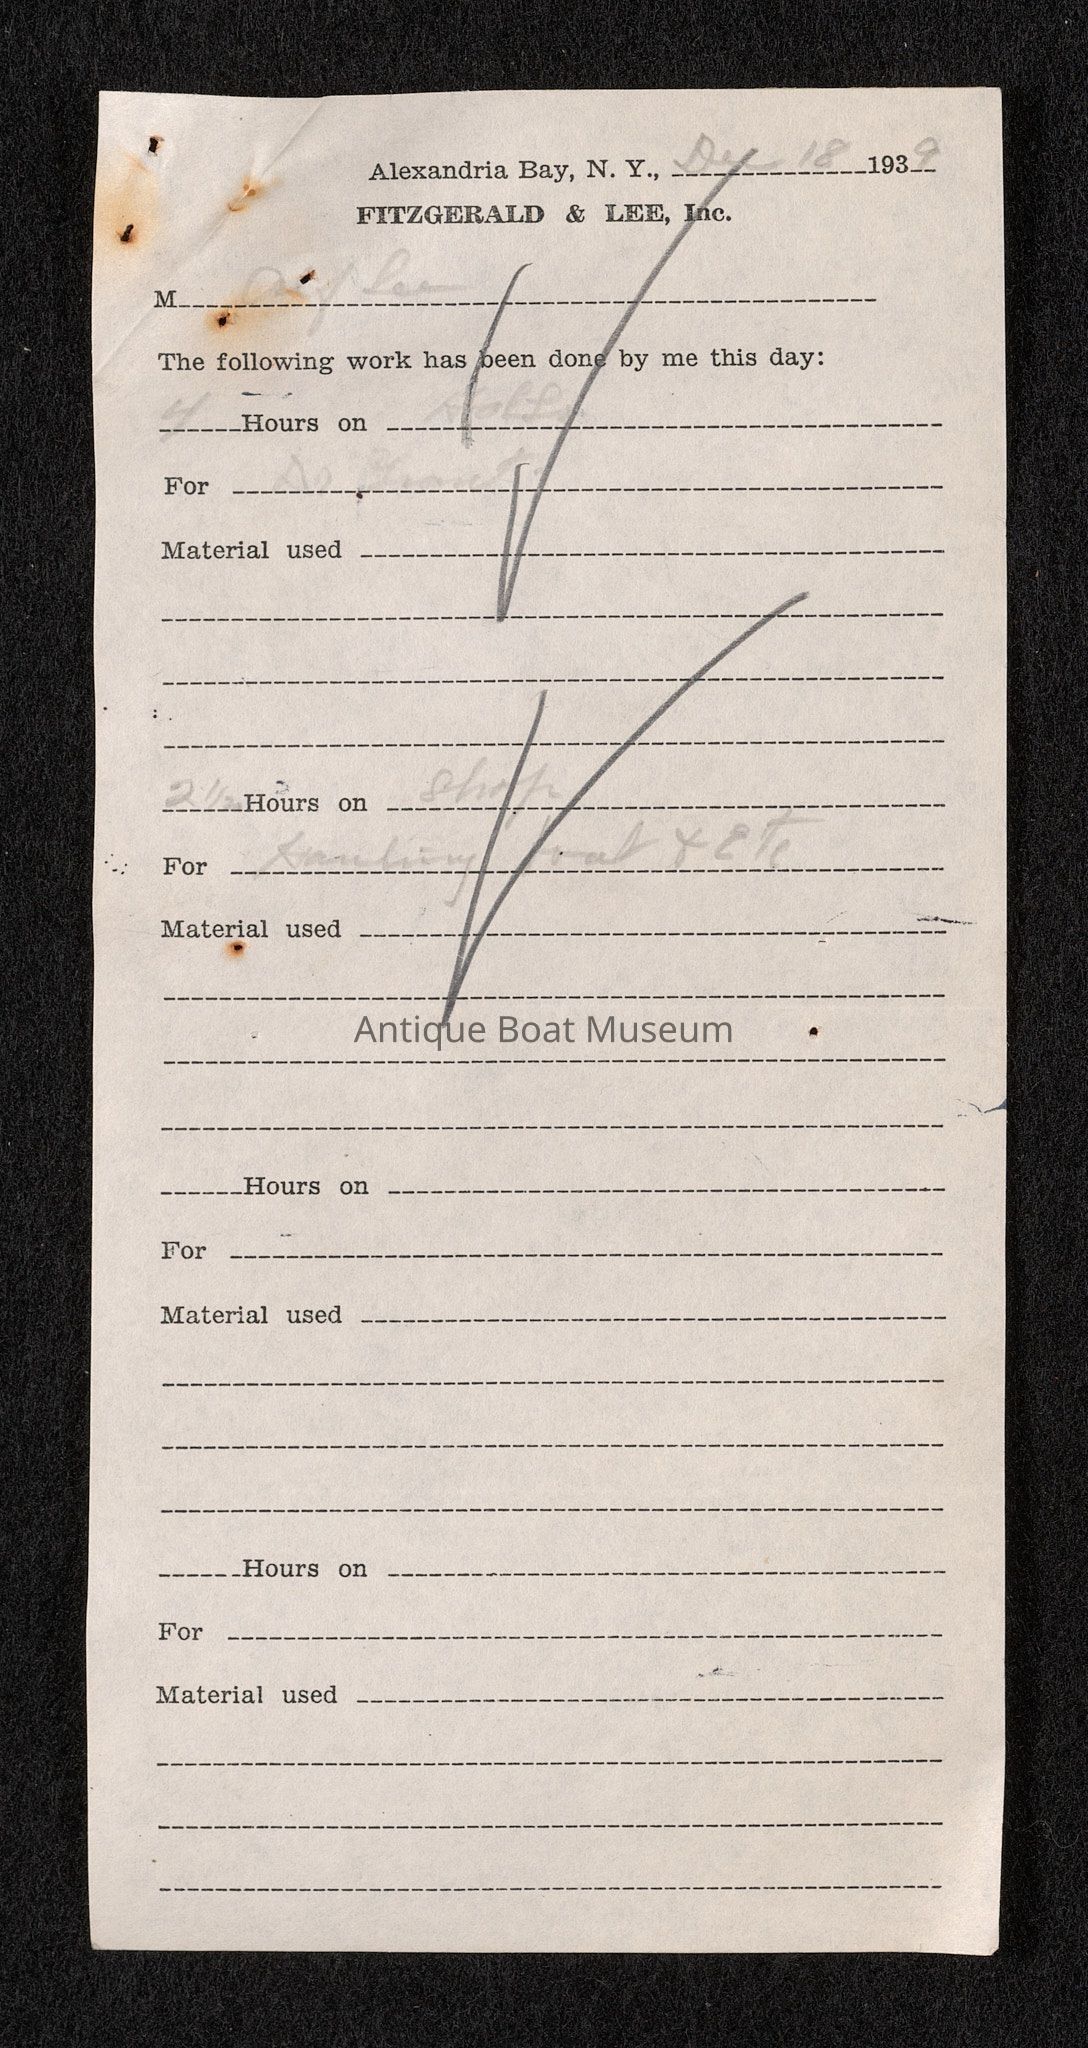 Alexandria Bay, N. Y., Dec 18 1939
FITZGERALD & LEE, Inc.
M Lee
The following work has been done by me this day:
4 Hours on
For
Material used
2 1/2 Hours on Shop
For boat & Etc
Material used
Antique Boat Museum
Hours on
For
Material used
Hours on
For
Material used